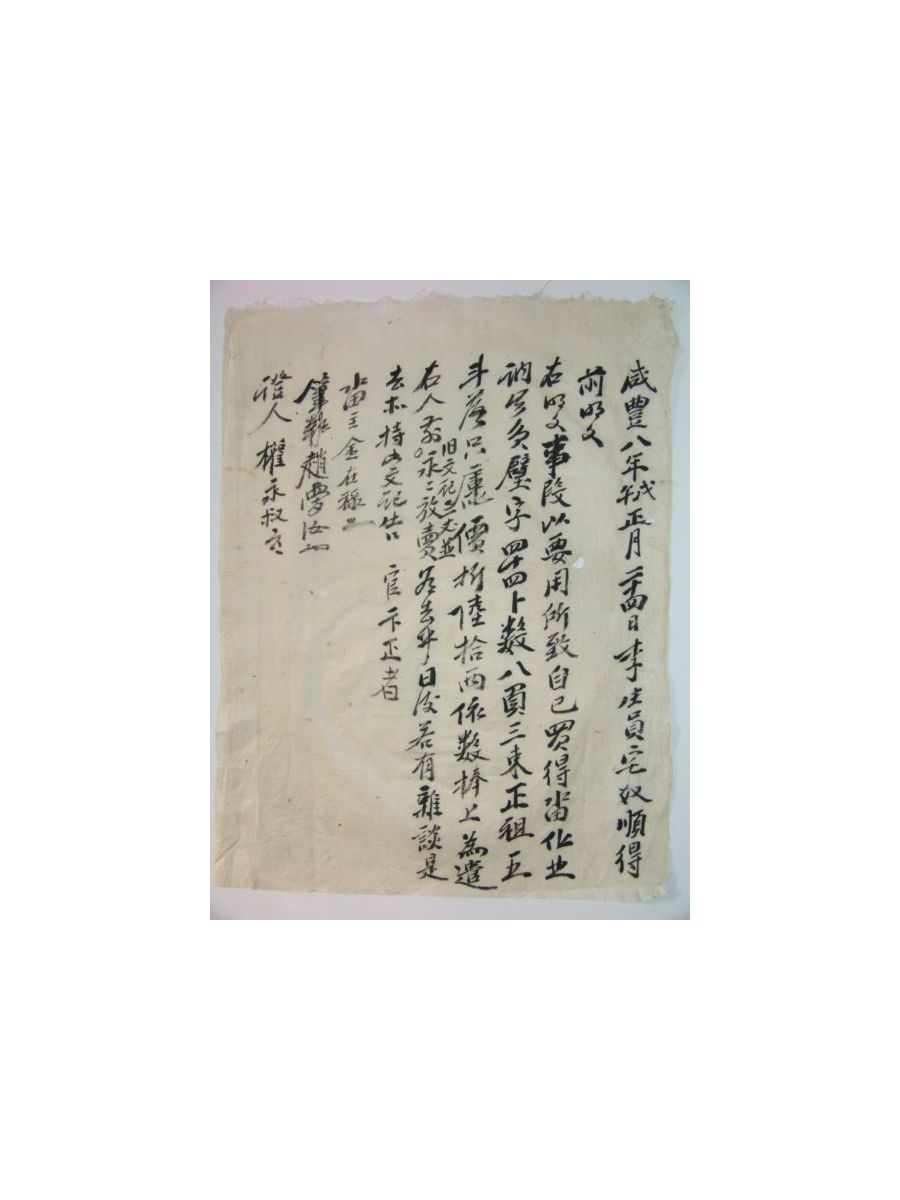 咸豐八年戊正月二十四日李生員宅奴順得
前明文
右明文事段以要用所致自己買得畓伏在
員璧字四十四卜數八員三東正租五
斗落只廛價折陸拾兩依數捧上為遣
右人前旧文記三丈並永永放賣為去乎日後若有雜談是
去等持此文記告官卞正者
畓主金在祿
筆執趙
證人權永叔